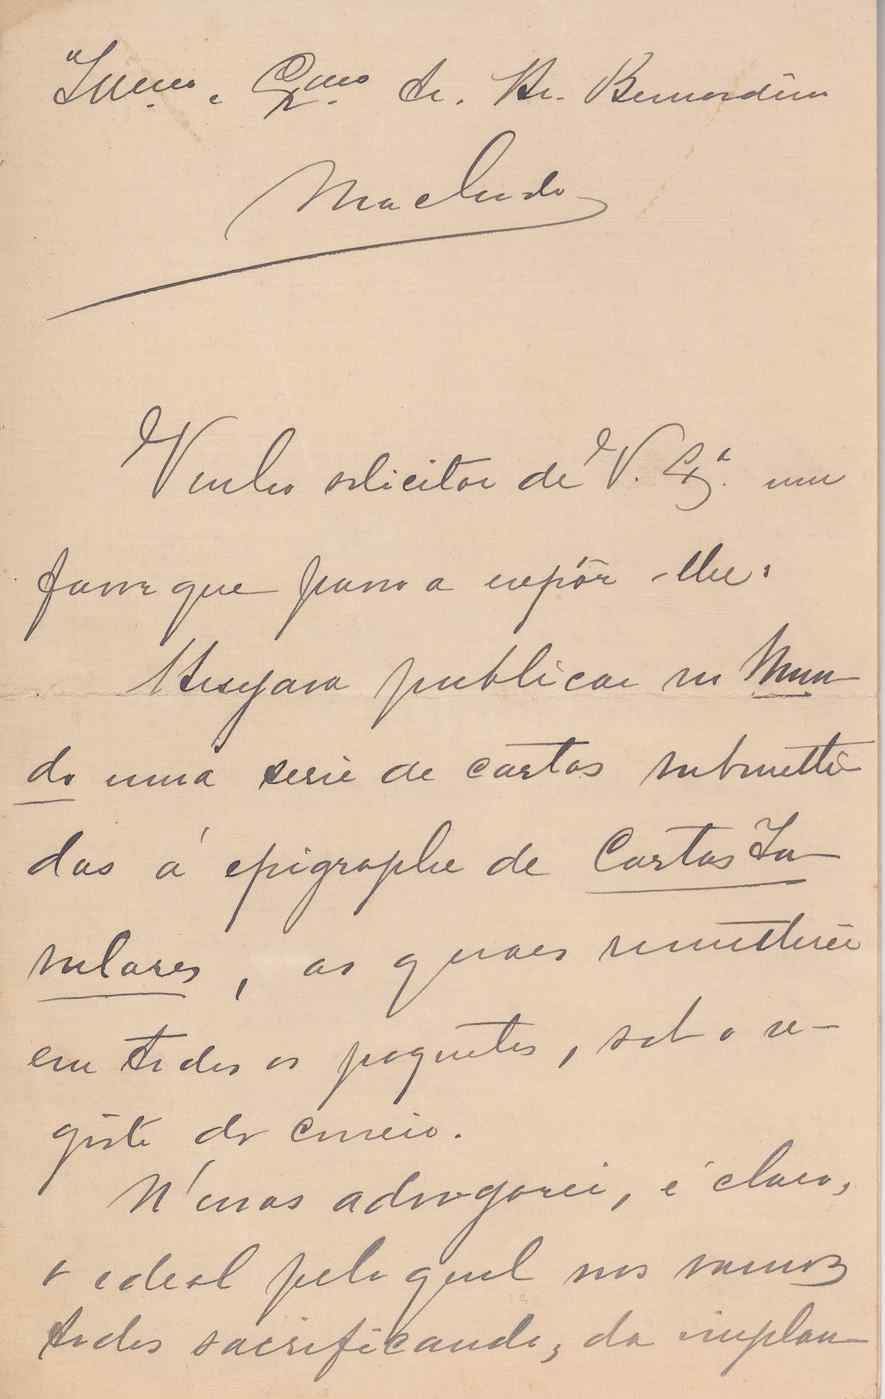 Illmo. e Exmo. Sr. Dr. Bernardino
Machado
Venho solicitar de V. Exª. um
favor que passo a expôr-lhe:
Desejava publicar no Mun-
do uma serie de cartas submetti-
das á epigraphe de Cartas In-
sulares, as quaes remetterei
em todos os paquetes, sob o re-
gisto do correio.
N'essas advogarei, é claro,
o ideal pelo qual nos vamos
todos sacrificando, da implan-